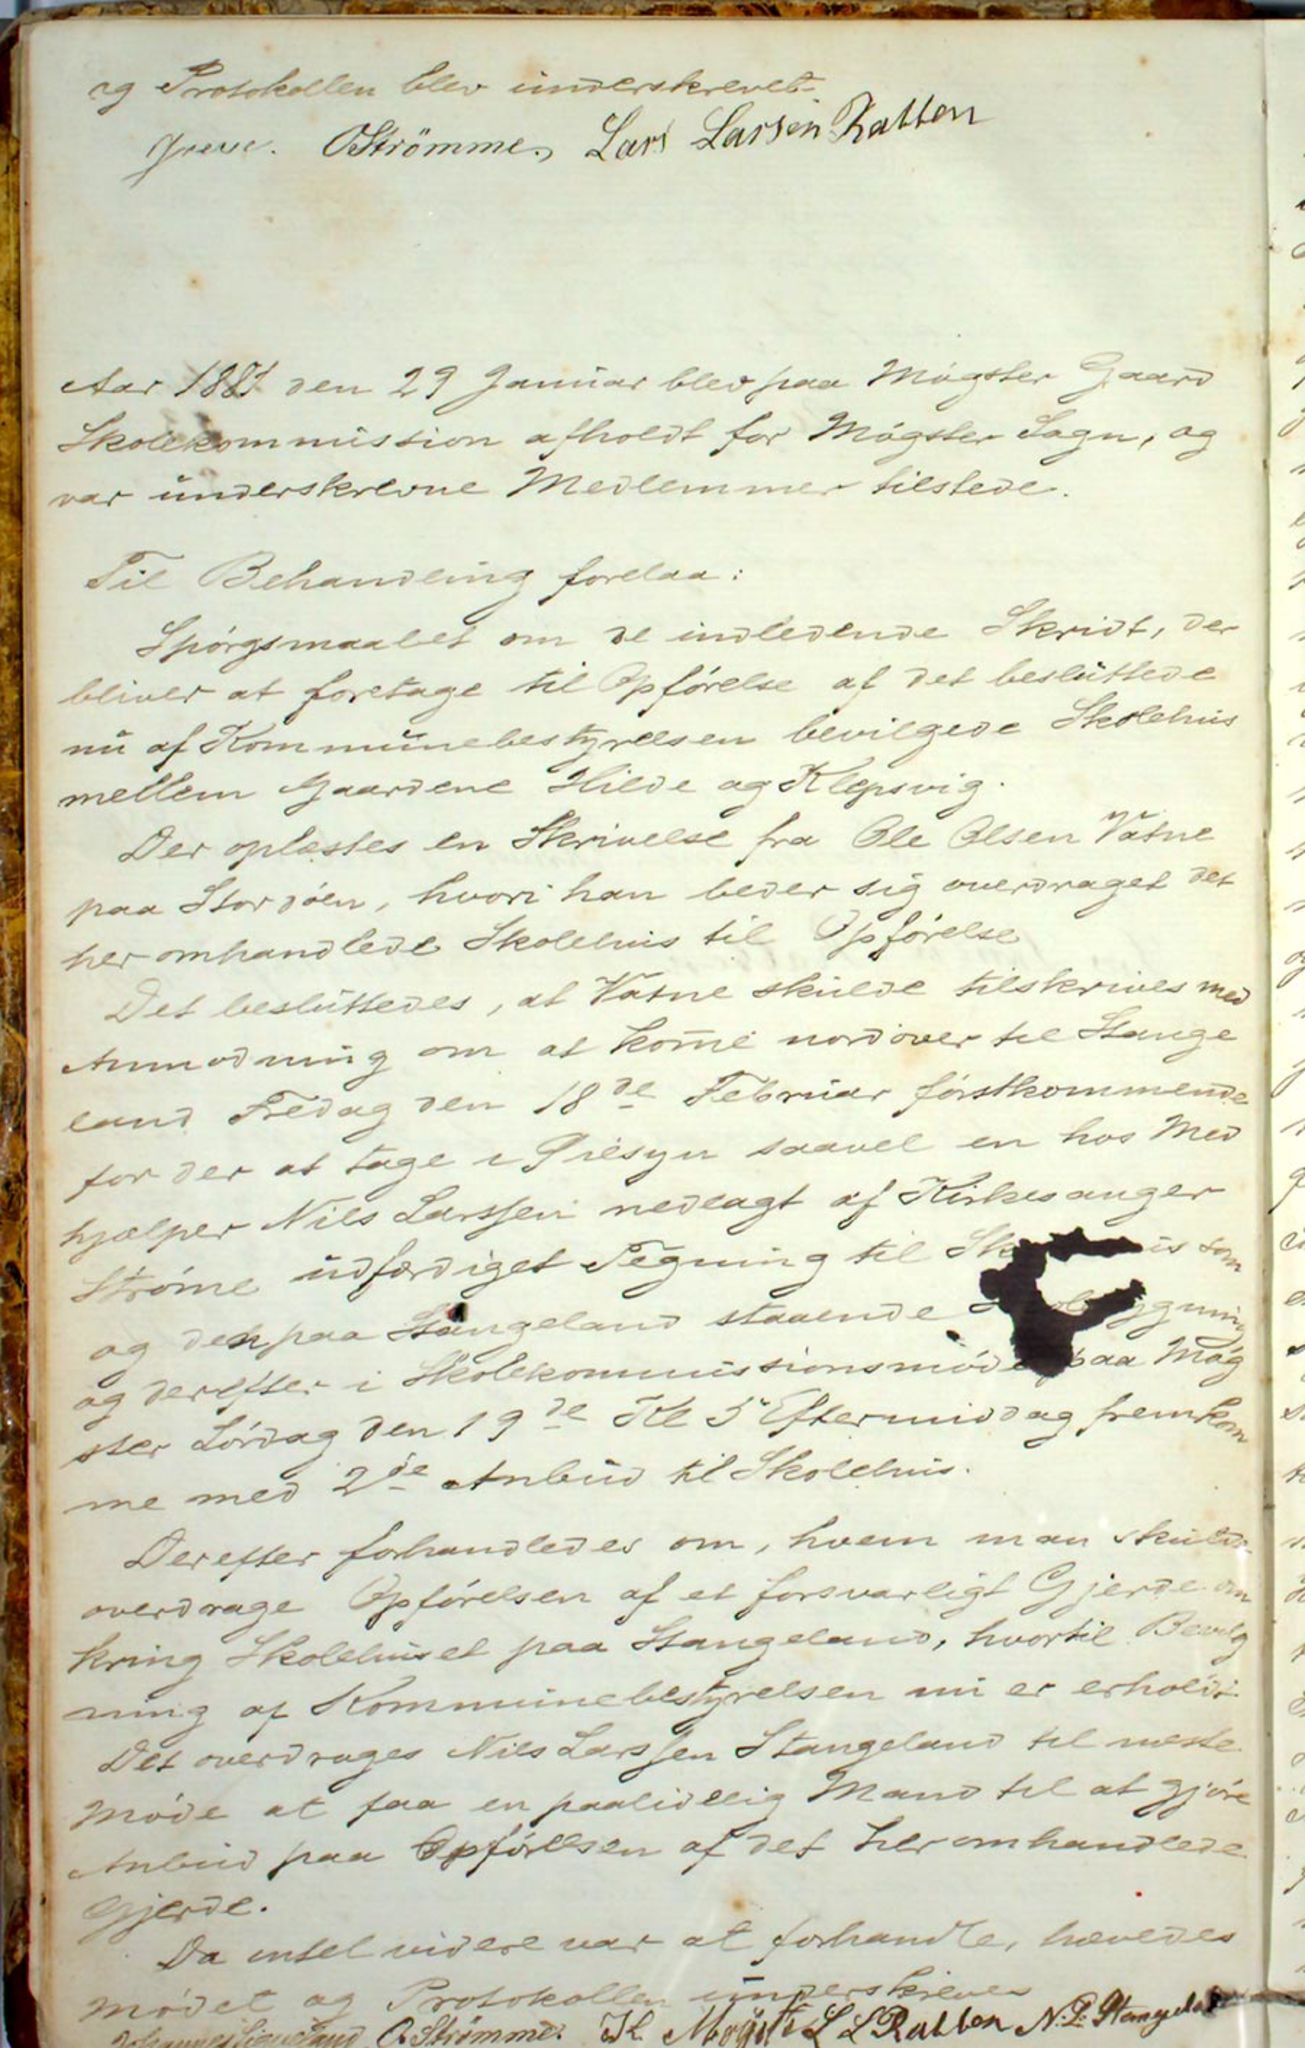 og Protokollen blev underskrevet
Greve. OStrömme, Lars Larsen Ratten
Aar 1881 den 29 Januar blev paa Møgster Gaard
Skolekommission afholdt for Møgster Sogn, og
var underskrevne Medlemmer tilstede.
Til Behandling forelaa:
Spørgsmaalet om de indledende Skridt, der
bliver at foretage til Opførelse af det besluttede
nu af Kommunebestyrelsen bevilgede Skolehus
mellem Gaardene Hilde og Klepsvig.
Der oplæstes en Skrivelse fra Ole Olsen Vatne
paa Stordøen, hvori han beder sig overdraget det
her omhandlede Skolehus til Opførelse
Det besluttedes, at Vatne skulde tilskrives med
Anmodning om at kom̄e nordover til Stange
land Fredag den 18de Februar førstkommende
for der at tage i Øiesyn saavel en hos Med
hjælper Nils Larssen nedlagt af Kirkesanger
Strøme udfærdiget Tegning til Sk us som
og den paa Stangeland staaende ygning
og derefter i Skolekommissionsmøde paa Møg
ster Lørdag den 19de Kl 5 Eftermiddag fremkom
me med 2de Anbud til Skolehus.
Derefter forhandledes om, hvem man skulde
overdrage Opførelsen af et forsvarligt Gjerde om
kring Skolehuset paa Stangeland, hvortil Bevilg
ning af Kommunebestyrelsen nu er erholdt
Det overdrages Nils Larssen Stangeland til næste
Møde at faa en paalidelig Mand til at gjøre
Anbud paa Opførelsen af det her omhandlede
Gjerde.
Da intet videre var at forhandle, hævedes
Mødet og Protokollen underskreves
OStrömme. L L Ratten N. L. Stangeland